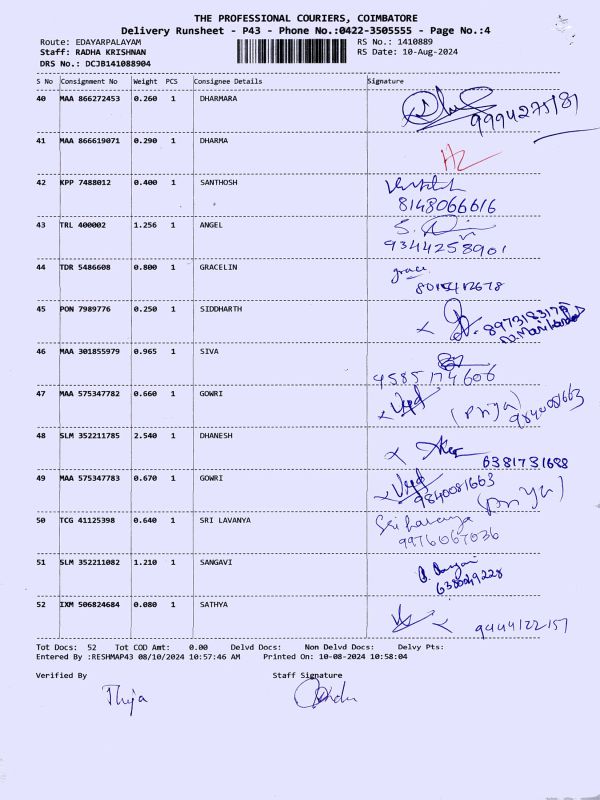 THE PROFESSIONAL COURIERS, COIMBATORE
Delivery Runsheet - P43 - Phone No.:0422-3505555 - Page No.:4
Route: EDAYARPALAYAM RS No.: 1410889
Staff: RADHA KRISHNAN RS Date: 10-Aug-2024
DRS No.: DCJB141088904
S No Consignment No Weight PCS Consignee Details Signature
40 MAA 866272453 0.260 1 DHARMARA
9994275181
41 MAA 866619071 0.290 1 DHARMA
42 KPP 7488012 0.400 1 SANTHOSH
8148066616
43 TRL 400002 1.256 1 ANGEL
9344258901
44 TDR 5486608 0.800 1 GRACELIN grace
45 PON 7989776 0.250 1 SIDDHARTH
46 MAA 301855979 0.965 1 SIVA
9585174606
47 MAA 575347782 0.660 1 GOWRI (Priya)
9840081663
48 SLM 352211785 2.540 1 DHANESH
6381731688
49 MAA 575347783 0.670 1 GOWRI
9840081663 (Priya)
50 TCG 41125398 0.640 1 SRI LAVANYA Sri Lavanya
9976067036
51 SLM 352211082 1.210 1 SANGAVI
52 IXM 506824684 0.080 1 SATHYA
9444122157
Tot Docs: 52 Tot COD Amt: 0.00 Delvd Docs: Non Delvd Docs: Delvy Pts:
Entered By :RESHMAP43 08/10/2024 10:57:46 AM Printed On: 10-08-2024 10:58:04
Verified By Staff Signature